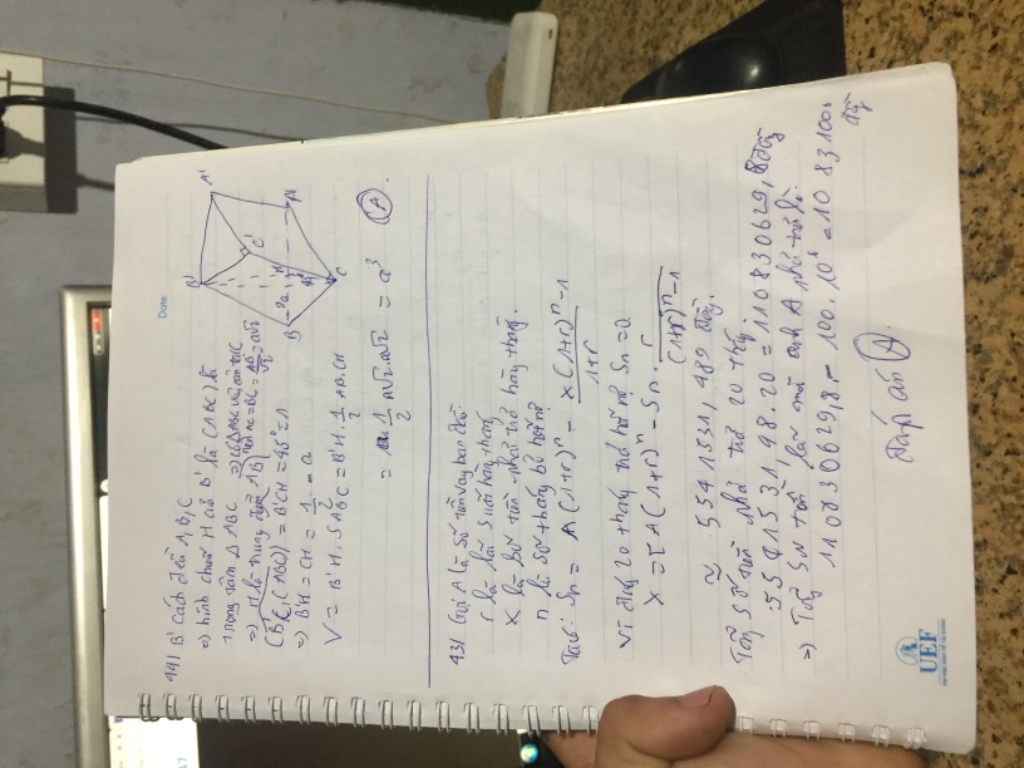 Date:
491 B' cách đều A, B, C
=> hình chiếu H của B' là (ABC) là
trọng tâm Δ ABC
=> H là trung điểm AB
(B'C, (ABC)) = B'CH = 45° = 1
=> B'H = CH = 1/2 = a
V = B'H . SABC = B'H . 1/2 AB.CH
= a 1/2 a√2 . a√2 = a³
A
B'
A'
C'
B
2a
H
A
C
431 Gọi A là số tiền vay ban đầu
r là lãi suất hàng tháng
X là số tiền phải trả hàng tháng
n là số tháng trả hết nợ
Sn = A (1+r)ⁿ - X (1+r)ⁿ-1 / 1+r
Vì đúng 20 tháng trả hết nợ Sn = 0
X = [A (1+r)ⁿ - Sn . r / (1+r)ⁿ-1
≈ 5541531,489 đồng.
Tổng số tiền phải trả 20 tháng
5541531,48.20 = 110830629,8 đồng
=> Tổng số tiền lãi mà anh A phải trả là:
110830629,8 - 100.10⁶ = 10 831000
đồng
Đáp án A
UEF